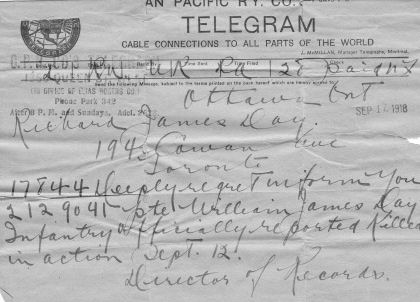 AN PACIFIC RY. CO.
TELEGRAM
CABLE CONNECTIONS TO ALL PARTS OF THE WORLD
J. McMILLAN, Manager Telegraphs, Montreal.
Time Sent Time Filed
Send the following Message, subject to the terms printed on the back hereof which are hereby
IN OFFICE OF ELIAS ROGERS CO.
Phone Park 342
After 8 P. M. and Sundays, Adel.
Ottawa Ont
SEP 17 1918
Richard James Day.
194 Cowan Ave
Toronto
17844 Deeply regret inform you
2129041 Pte William James Day
Infantry Officially reported Killed
in action Sept. 12.
Director of Records.